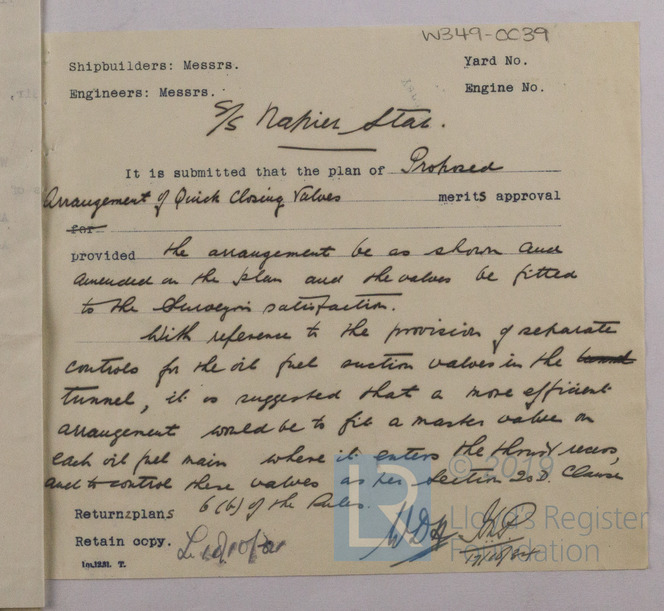 W349-0039
Shipbuilders: Messrs. Yard No.
Engineers: Messrs. Engine No.
S/S Napier Star.
It is submitted that the plan of Proposed
Arrangement of Quick Closing Valves merits approval
for
provided the arrangement be as shown and
amended on the plan and the valves be fitted
to the Surveyors satisfaction.
With reference to the provision of separate
controls for the oil fuel suction valves in the tunnel
tunnel, it is suggested that a more efficient
arrangement would be to fit a master valve on
each oil fuel main where it enters the thrust recess,
and to control these valves as per Section 20 D. Clause
6(b) of the Rules.
Return 2 plans
Retain copy.
1m,12.31. T.
LR © 2019
Lloyd's Register
Foundation